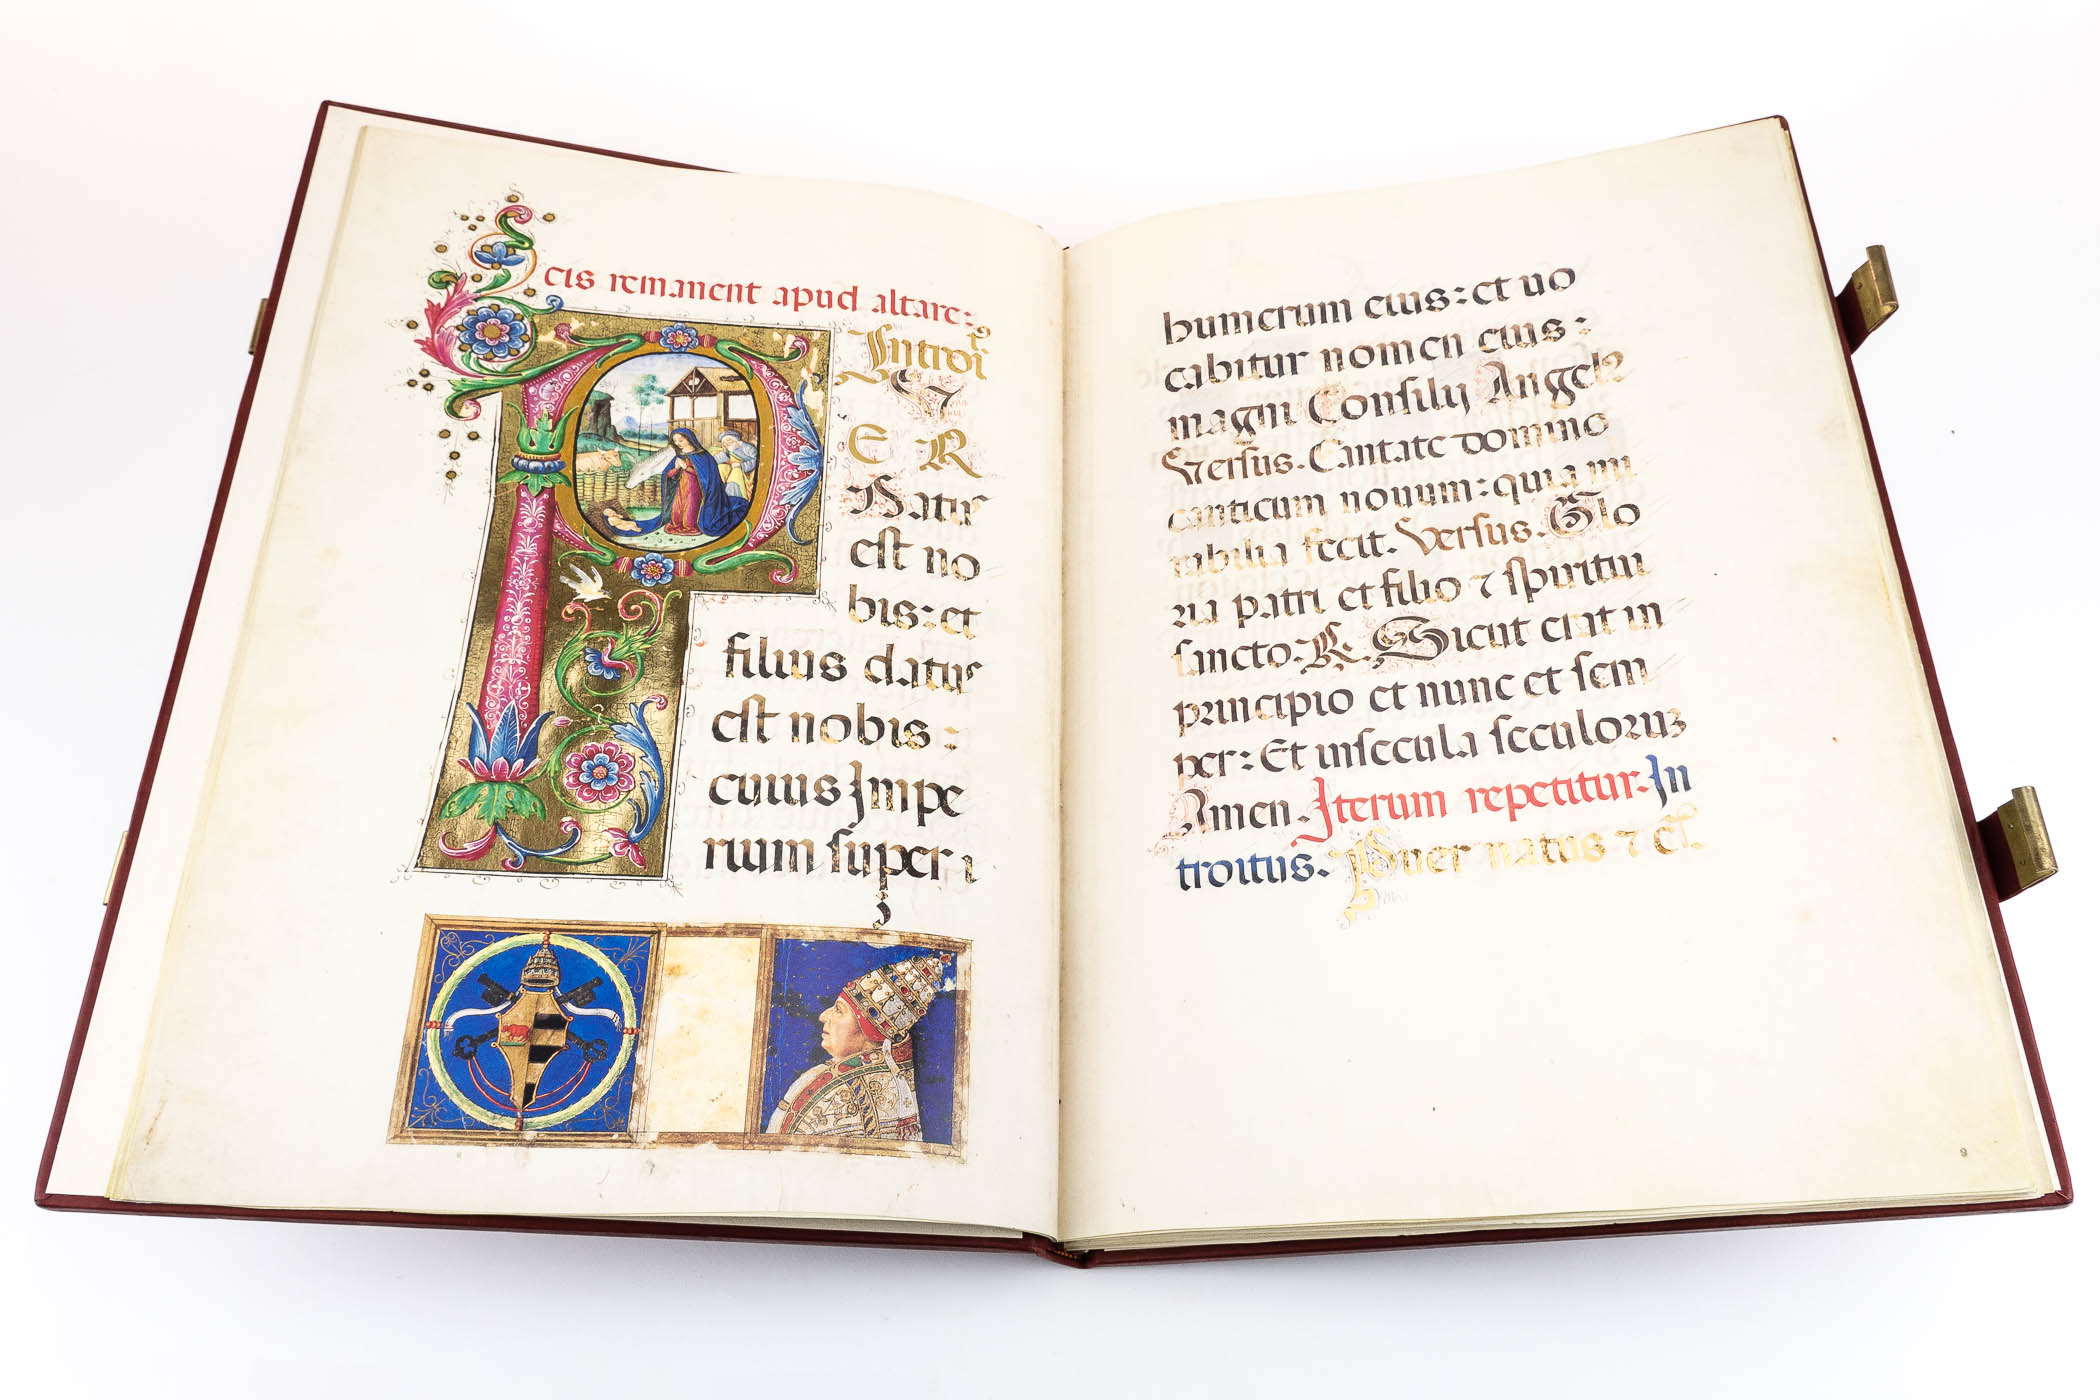 cis remanent apud altare:
Introit9
V
E R
Natus
est no
bis: et
filius datus
est nobis:
cuius Impe
rium super i
humerum eius: et uo
cabitur nomen eius:
magni Consilij Angel9
Versus. Cantate domino
canticum nouum: quia mi
rabilia fecit. Versus. Glo
ria patri et filio ⁊ spiritui
sancto. R. Sicut erat in
principio et nunc et sem
per: Et insecula seculorum
Amen. Iterum repetitur. In
troitus. Puer natus ⁊ ct.
9